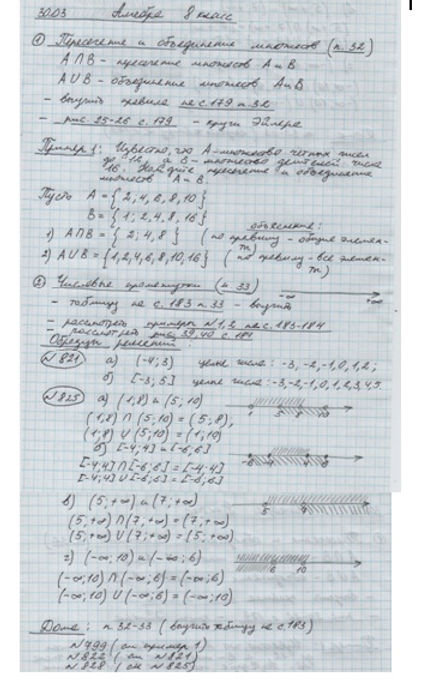 30.03 Алгебра 8 класс
① Пересечение и объединение множеств (п. 32)
A∩B - пересечение множеств A и B
A∪B - объединение множеств A и B
- выучить правила на с.179 п.32
- рис. 25-26 с. 179 - круги Эйлера
Пример 1: Известно, что A - множество четных чисел
до 16, а B - множество делителей числа
16. Найдите пересечение и объединение
множеств A и B.
Пусть A = {2; 4, 6, 8, 10}
B = {1; 2, 4, 8, 16}
объяснение:
1) A∩B = {2; 4, 8} (по правилу - общие элемен-
ты)
2) A∪B = {1, 2, 4, 6, 8, 10, 16} (по правилу - все элемен-
ты)
② Числовые промежутки (п. 33) -∞ +∞
- таблицу на с. 183 п.33 - выучить
- рассмотреть примеры №1, 2 на с. 183-184
- рассмотреть рис. 39, 40 с. 184
Образцы решений:
№821 а) (-4; 3) целые числа: -3, -2, -1, 0, 1, 2;
б) [-3; 5] целые числа: -3, -2, -1, 0, 1, 2, 3, 4, 5.
№825 а) (1; 8) и (5; 10) 1 5 8 10
(1; 8) ∩ (5; 10) = (5; 8),
(1; 8) ∪ (5; 10) = (1; 10)
б) [-4; 4] и [-6; 6] -6 -4 4 6
[-4; 4] ∩ [-6; 6] = [-4; 4]
[-4; 4] ∪ [-6; 6] = [-6; 6]
в) (5; +∞) и (7; +∞) 5 7
(5; +∞) ∩ (7; +∞) = (7; +∞)
(5; +∞) ∪ (7; +∞) = (5; +∞)
г) (-∞; 10) и (-∞; 6) 6 10
(-∞; 10) ∩ (-∞; 6) = (-∞; 6)
(-∞; 10) ∪ (-∞; 6) = (-∞; 10)
Дома: п. 32-33 (выучить таблицу на с. 183)
№799 (см. пример 1)
№822 (см. №821)
№828 (см. №825)